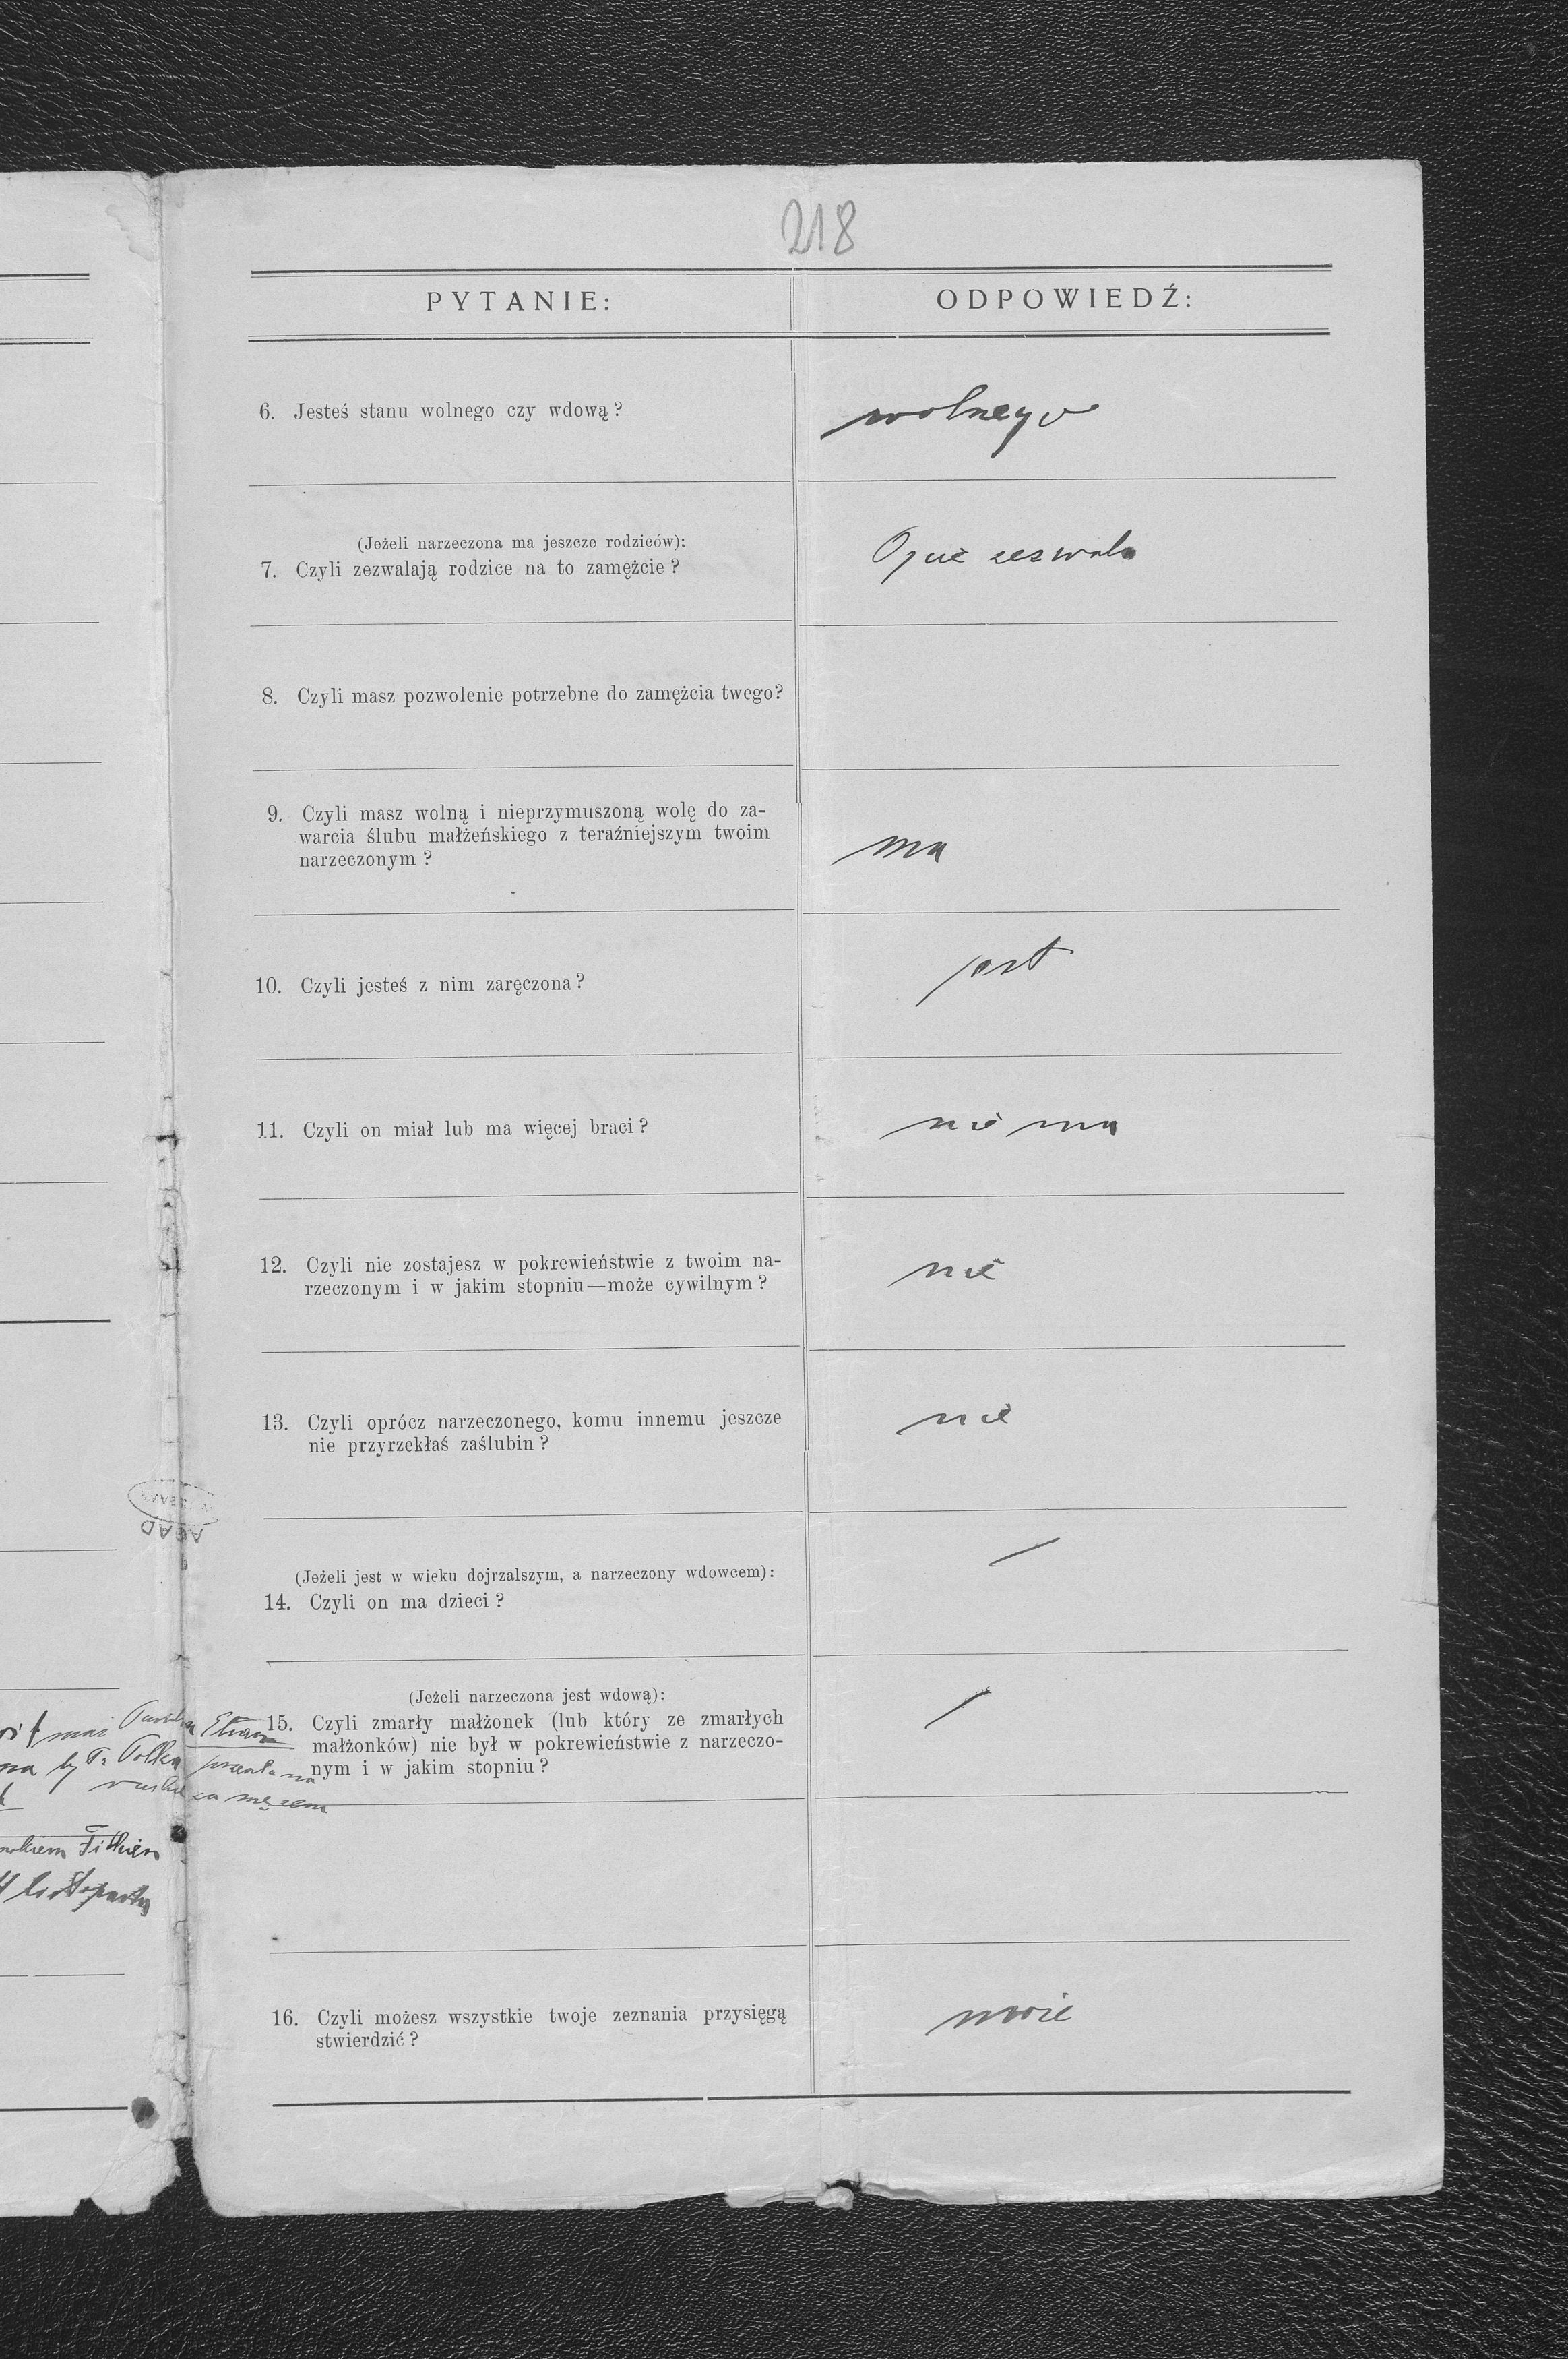 218
PYTANIE: ODPOWIEDŹ:
6. Jesteś stanu wolnego czy wdową? wolnego
(Jeżeli narzeczona ma jeszcze rodziców):
7. Czyli zezwalają rodzice na to zamężcie? Ojciec zezwala
8. Czyli masz pozwolenie potrzebne do zamężcia twego?
9. Czyli masz wolną i nieprzymuszoną wolę do za-
warcia ślubu małżeńskiego z teraźniejszym twoim
narzeczonym? ma
10. Czyli jesteś z nim zaręczona? jest
11. Czyli on miał lub ma więcej braci? nie ma
12. Czyli nie zostajesz w pokrewieństwie z twoim na-
rzeczonym i w jakim stopniu—może cywilnym? nie
13. Czyli oprócz narzeczonego, komu innemu jeszcze
nie przyrzekłaś zaślubin? nie
(Jeżeli jest w wieku dojrzalszym, a narzeczony wdowcem):
14. Czyli on ma dzieci? /
(Jeżeli narzeczona jest wdową):
15. Czyli zmarły małżonek (lub który ze zmarłych
małżonków) nie był w pokrewieństwie z narzeczo-
nym i w jakim stopniu? /
16. Czyli możesz wszystkie twoje zeznania przysięgą
stwierdzić? może
AGAD
za mężem
listopada